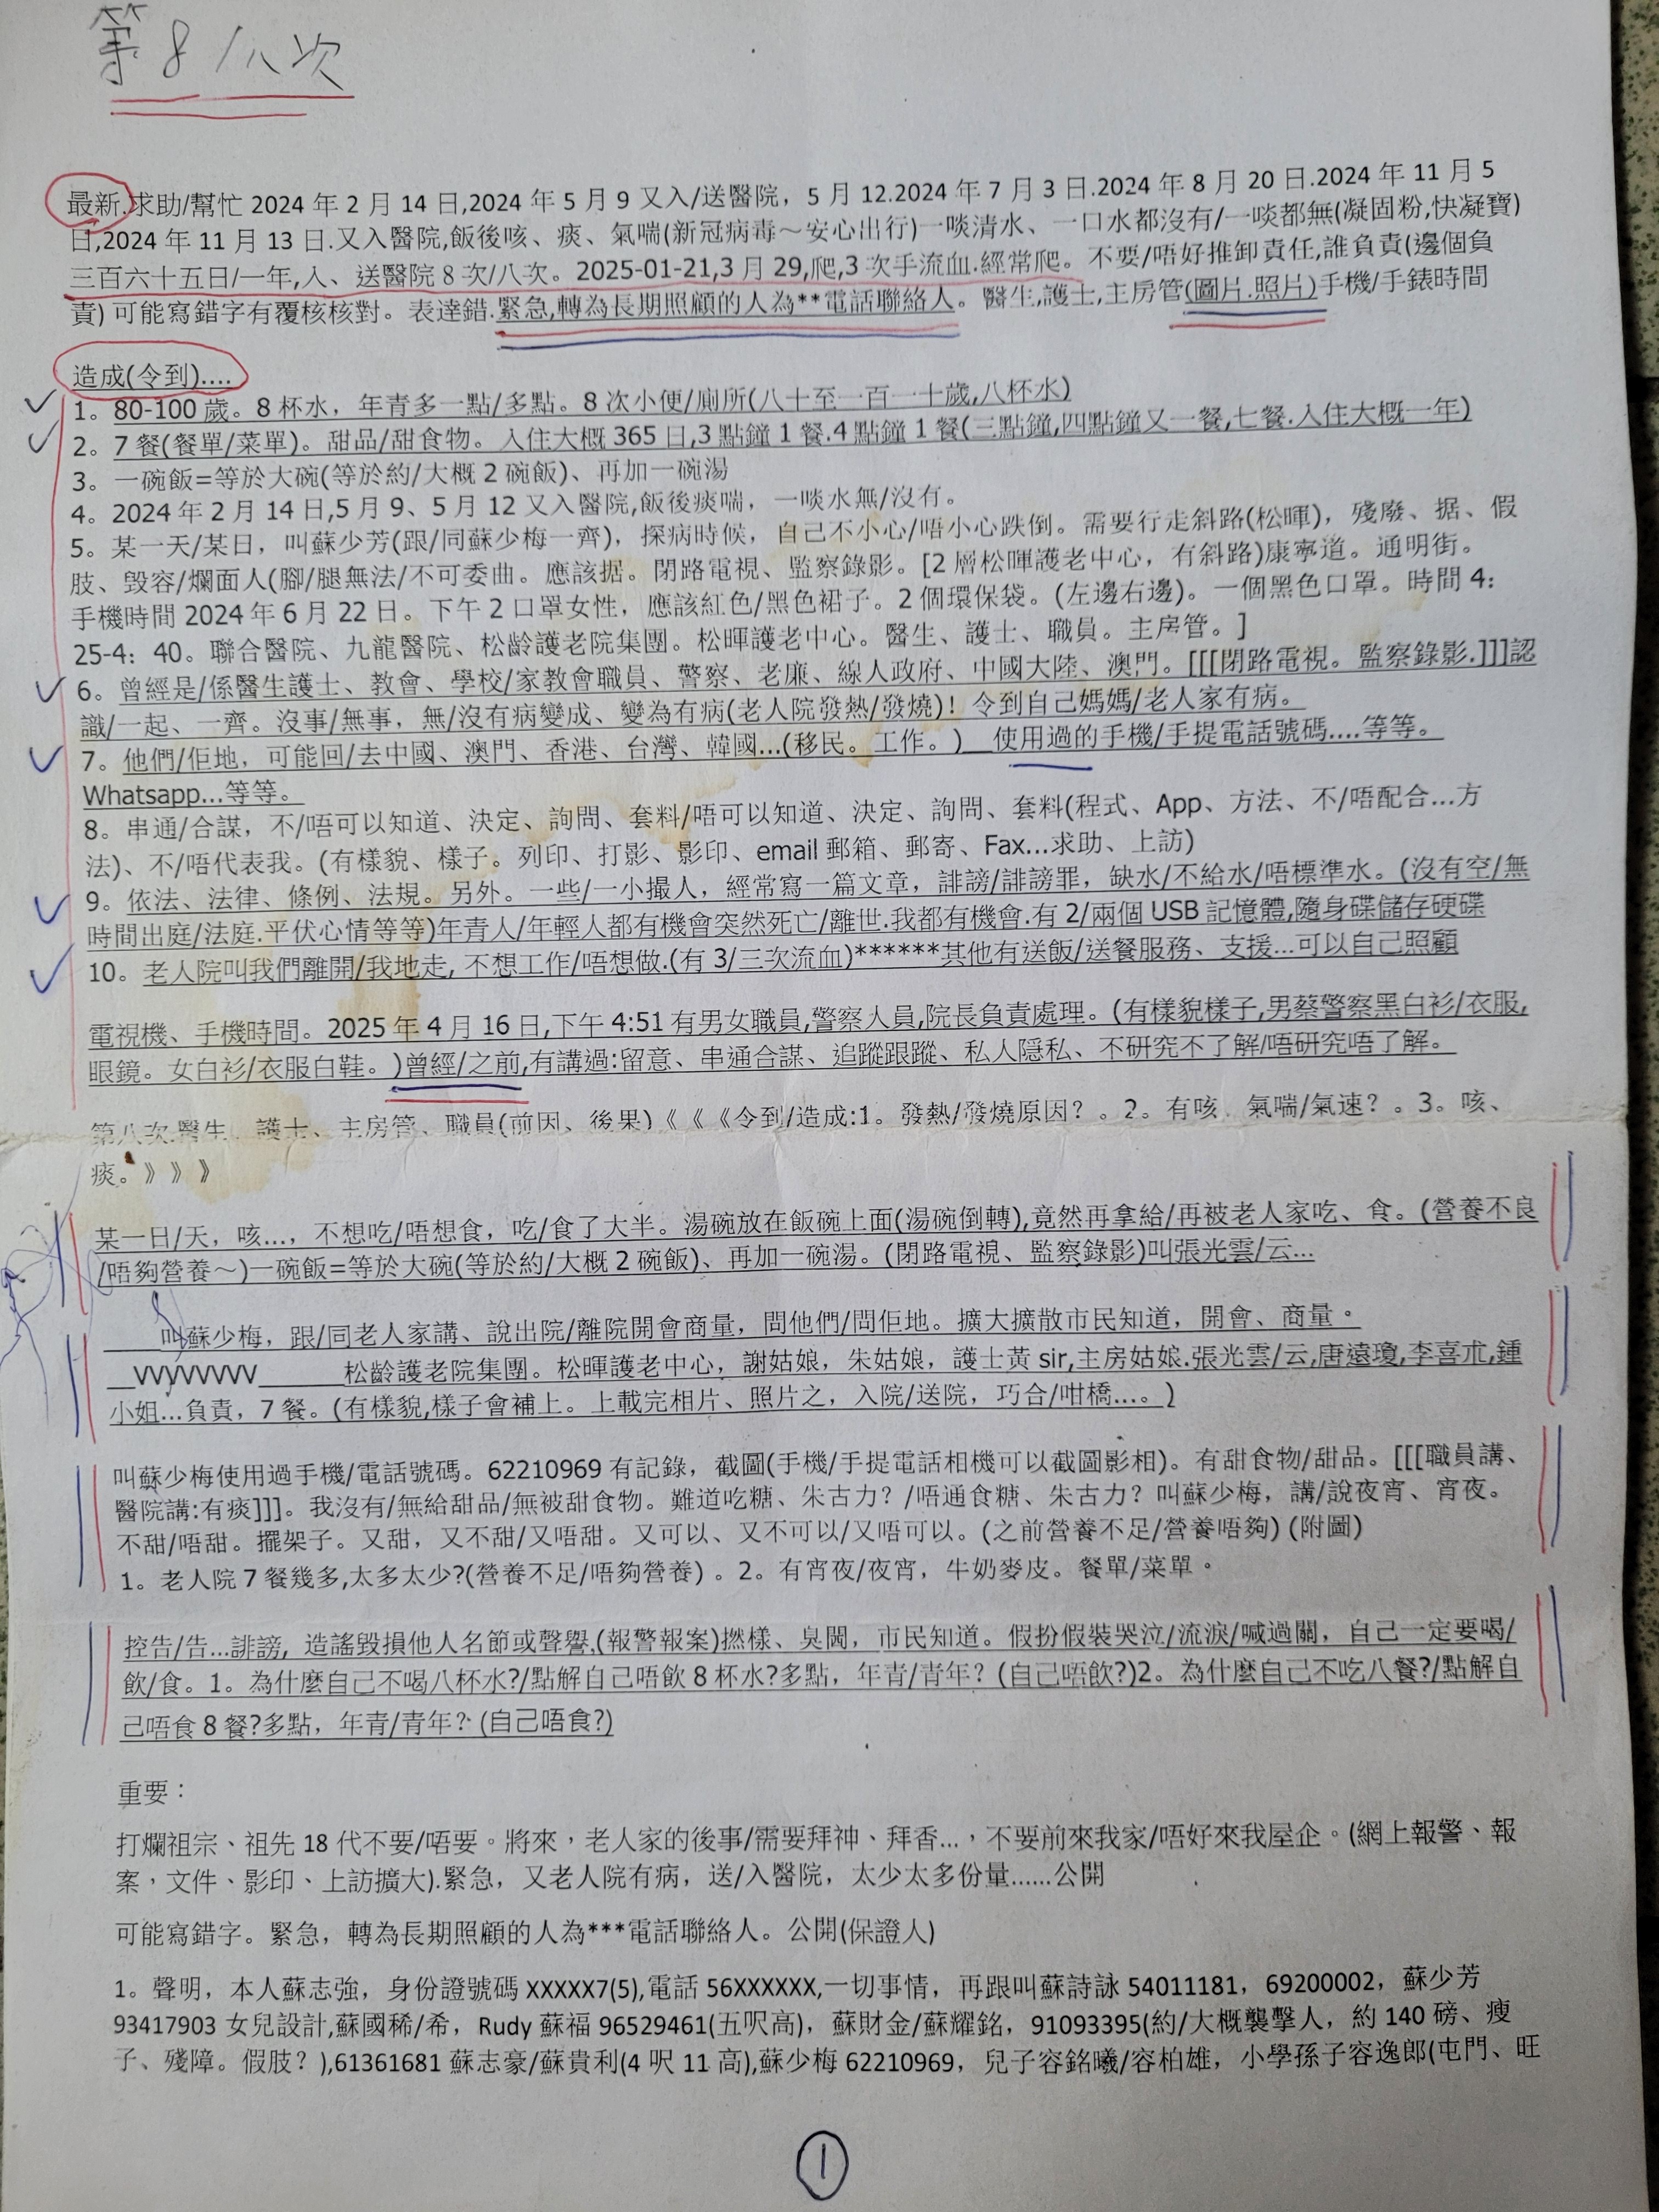 第8/八次
最新.求助/幫忙 2024 年 2 月 14 日,2024 年 5 月 9 又入/送醫院，5 月 12.2024 年 7 月 3 日.2024 年 8 月 20 日.2024 年 11 月 5
日,2024 年 11 月 13 日.又入醫院,飯後咳、痰、氣喘(新冠病毒～安心出行)一啖清水、一口水都沒有/一啖都無(凝固粉,快凝寶)
三百六十五日/一年,入、送醫院 8 次/八次。2025-01-21,3 月 29,爬,3 次手流血.經常爬。不要/唔好推卸責任,誰負責(邊個負
責) 可能寫錯字有覆核核對。表達錯.緊急,轉為長期照顧的人為**電話聯絡人。醫生,護士,主房管(圖片.照片)手機/手錶時間
造成(令到)....
1。80-100 歲。8 杯水，年青多一點/多點。8 次小便/廁所(八十至一百一十歲,八杯水)
2。7 餐(餐單/菜單)。甜品/甜食物。入住大概 365 日,3 點鐘 1 餐.4 點鐘 1 餐(三點鐘,四點鐘又一餐,七餐.入住大概一年)
3。一碗飯=等於大碗(等於約/大概 2 碗飯)、再加一碗湯
4。2024 年 2 月 14 日,5 月 9、5 月 12 又入醫院,飯後痰喘，一啖水無/沒有。
5。某一天/某日，叫蘇少芳(跟/同蘇少梅一齊)，探病時候，自己不小心/唔小心跌倒。需要行走斜路(松暉)，殘廢、据、假
肢、毀容/爛面人(腳/腿無法/不可委曲。應該据。閉路電視、監察錄影。[2 層松暉護老中心，有斜路)康寧道。通明街。
手機時間 2024 年 6 月 22 日。下午 2 口罩女性，應該紅色/黑色裙子。2 個環保袋。(左邊右邊)。一個黑色口罩。時間 4：
25-4：40。聯合醫院、九龍醫院、松齡護老院集團。松暉護老中心。醫生、護士、職員。主房管。]
6。曾經是/係醫生護士、教會、學校/家教會職員、警察、老廉、線人政府、中國大陸、澳門。[[[閉路電視。監察錄影.]]]認
識/一起、一齊。沒事/無事，無/沒有病變成、變為有病(老人院發熱/發燒)！令到自己媽媽/老人家有病。
7。他們/佢地，可能回/去中國、澳門、香港、台灣、韓國...(移民。工作。)__使用過的手機/手提電話號碼....等等。
Whatsapp...等等。
8。串通/合謀，不/唔可以知道、決定、詢問、套料/唔可以知道、決定、詢問、套料(程式、App、方法、不/唔配合...方
法)、不/唔代表我。(有樣貌、樣子。列印、打影、影印、email 郵箱、郵寄、Fax...求助、上訪)
9。依法、法律、條例、法規。另外。一些/一小撮人，經常寫一篇文章，誹謗/誹謗罪，缺水/不給水/唔標準水。(沒有空/無
時間出庭/法庭.平伏心情等等)年青人/年輕人都有機會突然死亡/離世.我都有機會.有 2/兩個 USB 記憶體,隨身碟儲存硬碟
10。老人院叫我們離開/我地走, 不想工作/唔想做.(有 3/三次流血)******其他有送飯/送餐服務、支援...可以自己照顧
電視機、手機時間。2025 年 4 月 16 日,下午 4:51 有男女職員,警察人員,院長負責處理。(有樣貌樣子,男蔡警察黑白衫/衣服,
眼鏡。女白衫/衣服白鞋。)曾經/之前,有講過:留意、串通合謀、追蹤跟蹤、私人隱私、不研究不了解/唔研究唔了解。
第八次.醫生、護士、主房管、職員(前因、後果)《《《令到/造成:1。發熱/發燒原因？。2。有咳、氣喘/氣速？。3。咳、
痰。》》》
某一日/天，咳...，不想吃/唔想食，吃/食了大半。湯碗放在飯碗上面(湯碗倒轉),竟然再拿給/再被老人家吃、食。(營養不良
/唔夠營養～)一碗飯=等於大碗(等於約/大概 2 碗飯)、再加一碗湯。(閉路電視、監察錄影)叫張光雲/云...
____叫蘇少梅，跟/同老人家講、說出院/離院開會商量，問他們/問佢地。擴大擴散市民知道，開會、商量。
__VVVVVVVV______松齡護老院集團。松暉護老中心，謝姑娘，朱姑娘，護士黃 sir,主房姑娘.張光雲/云,唐遠瓊,李喜朮,鍾
小姐...負責，7 餐。(有樣貌,樣子會補上。上載完相片、照片之，入院/送院，巧合/咁橋...。)
叫蘇少梅使用過手機/電話號碼。62210969 有記錄，截圖(手機/手提電話相機可以截圖影相)。有甜食物/甜品。[[[職員講、
醫院講:有痰]]]。我沒有/無給甜品/無被甜食物。難道吃糖、朱古力？/唔通食糖、朱古力？叫蘇少梅，講/說夜宵、宵夜。
不甜/唔甜。擺架子。又甜，又不甜/又唔甜。又可以、又不可以/又唔可以。(之前營養不足/營養唔夠) (附圖)
1。老人院 7 餐幾多,太多太少?(營養不足/唔夠營養) 。2。有宵夜/夜宵，牛奶麥皮。餐單/菜單。
控告/告...誹謗, 造謠毀損他人名節或聲譽,(報警報案)撚樣、臭閪，市民知道。假扮假裝哭泣/流淚/喊過關，自己一定要喝/
飲/食。1。為什麼自己不喝八杯水?/點解自己唔飲 8 杯水?多點，年青/青年？(自己唔飲?)2。為什麼自己不吃八餐?/點解自
己唔食 8 餐?多點，年青/青年？(自己唔食?)
重要：
打爛祖宗、祖先 18 代不要/唔要。將來，老人家的後事/需要拜神、拜香...，不要前來我家/唔好來我屋企。(網上報警、報
案，文件、影印、上訪擴大).緊急，又老人院有病，送/入醫院，太少太多份量......公開
可能寫錯字。緊急，轉為長期照顧的人為***電話聯絡人。公開(保證人)
1。聲明，本人蘇志強，身份證號碼 XXXXX7(5),電話 56XXXXXX,一切事情，再跟叫蘇詩詠 54011181，69200002，蘇少芳
93417903 女兒設計,蘇國稀/希，Rudy 蘇福 96529461(五呎高)，蘇財金/蘇耀銘，91093395(約/大概襲擊人，約 140 磅、瘦
子、殘障。假肢？),61361681 蘇志豪/蘇貴利(4 呎 11 高),蘇少梅 62210969，兒子容銘曦/容柏雄，小學孫子容逸郎(屯門、旺
1